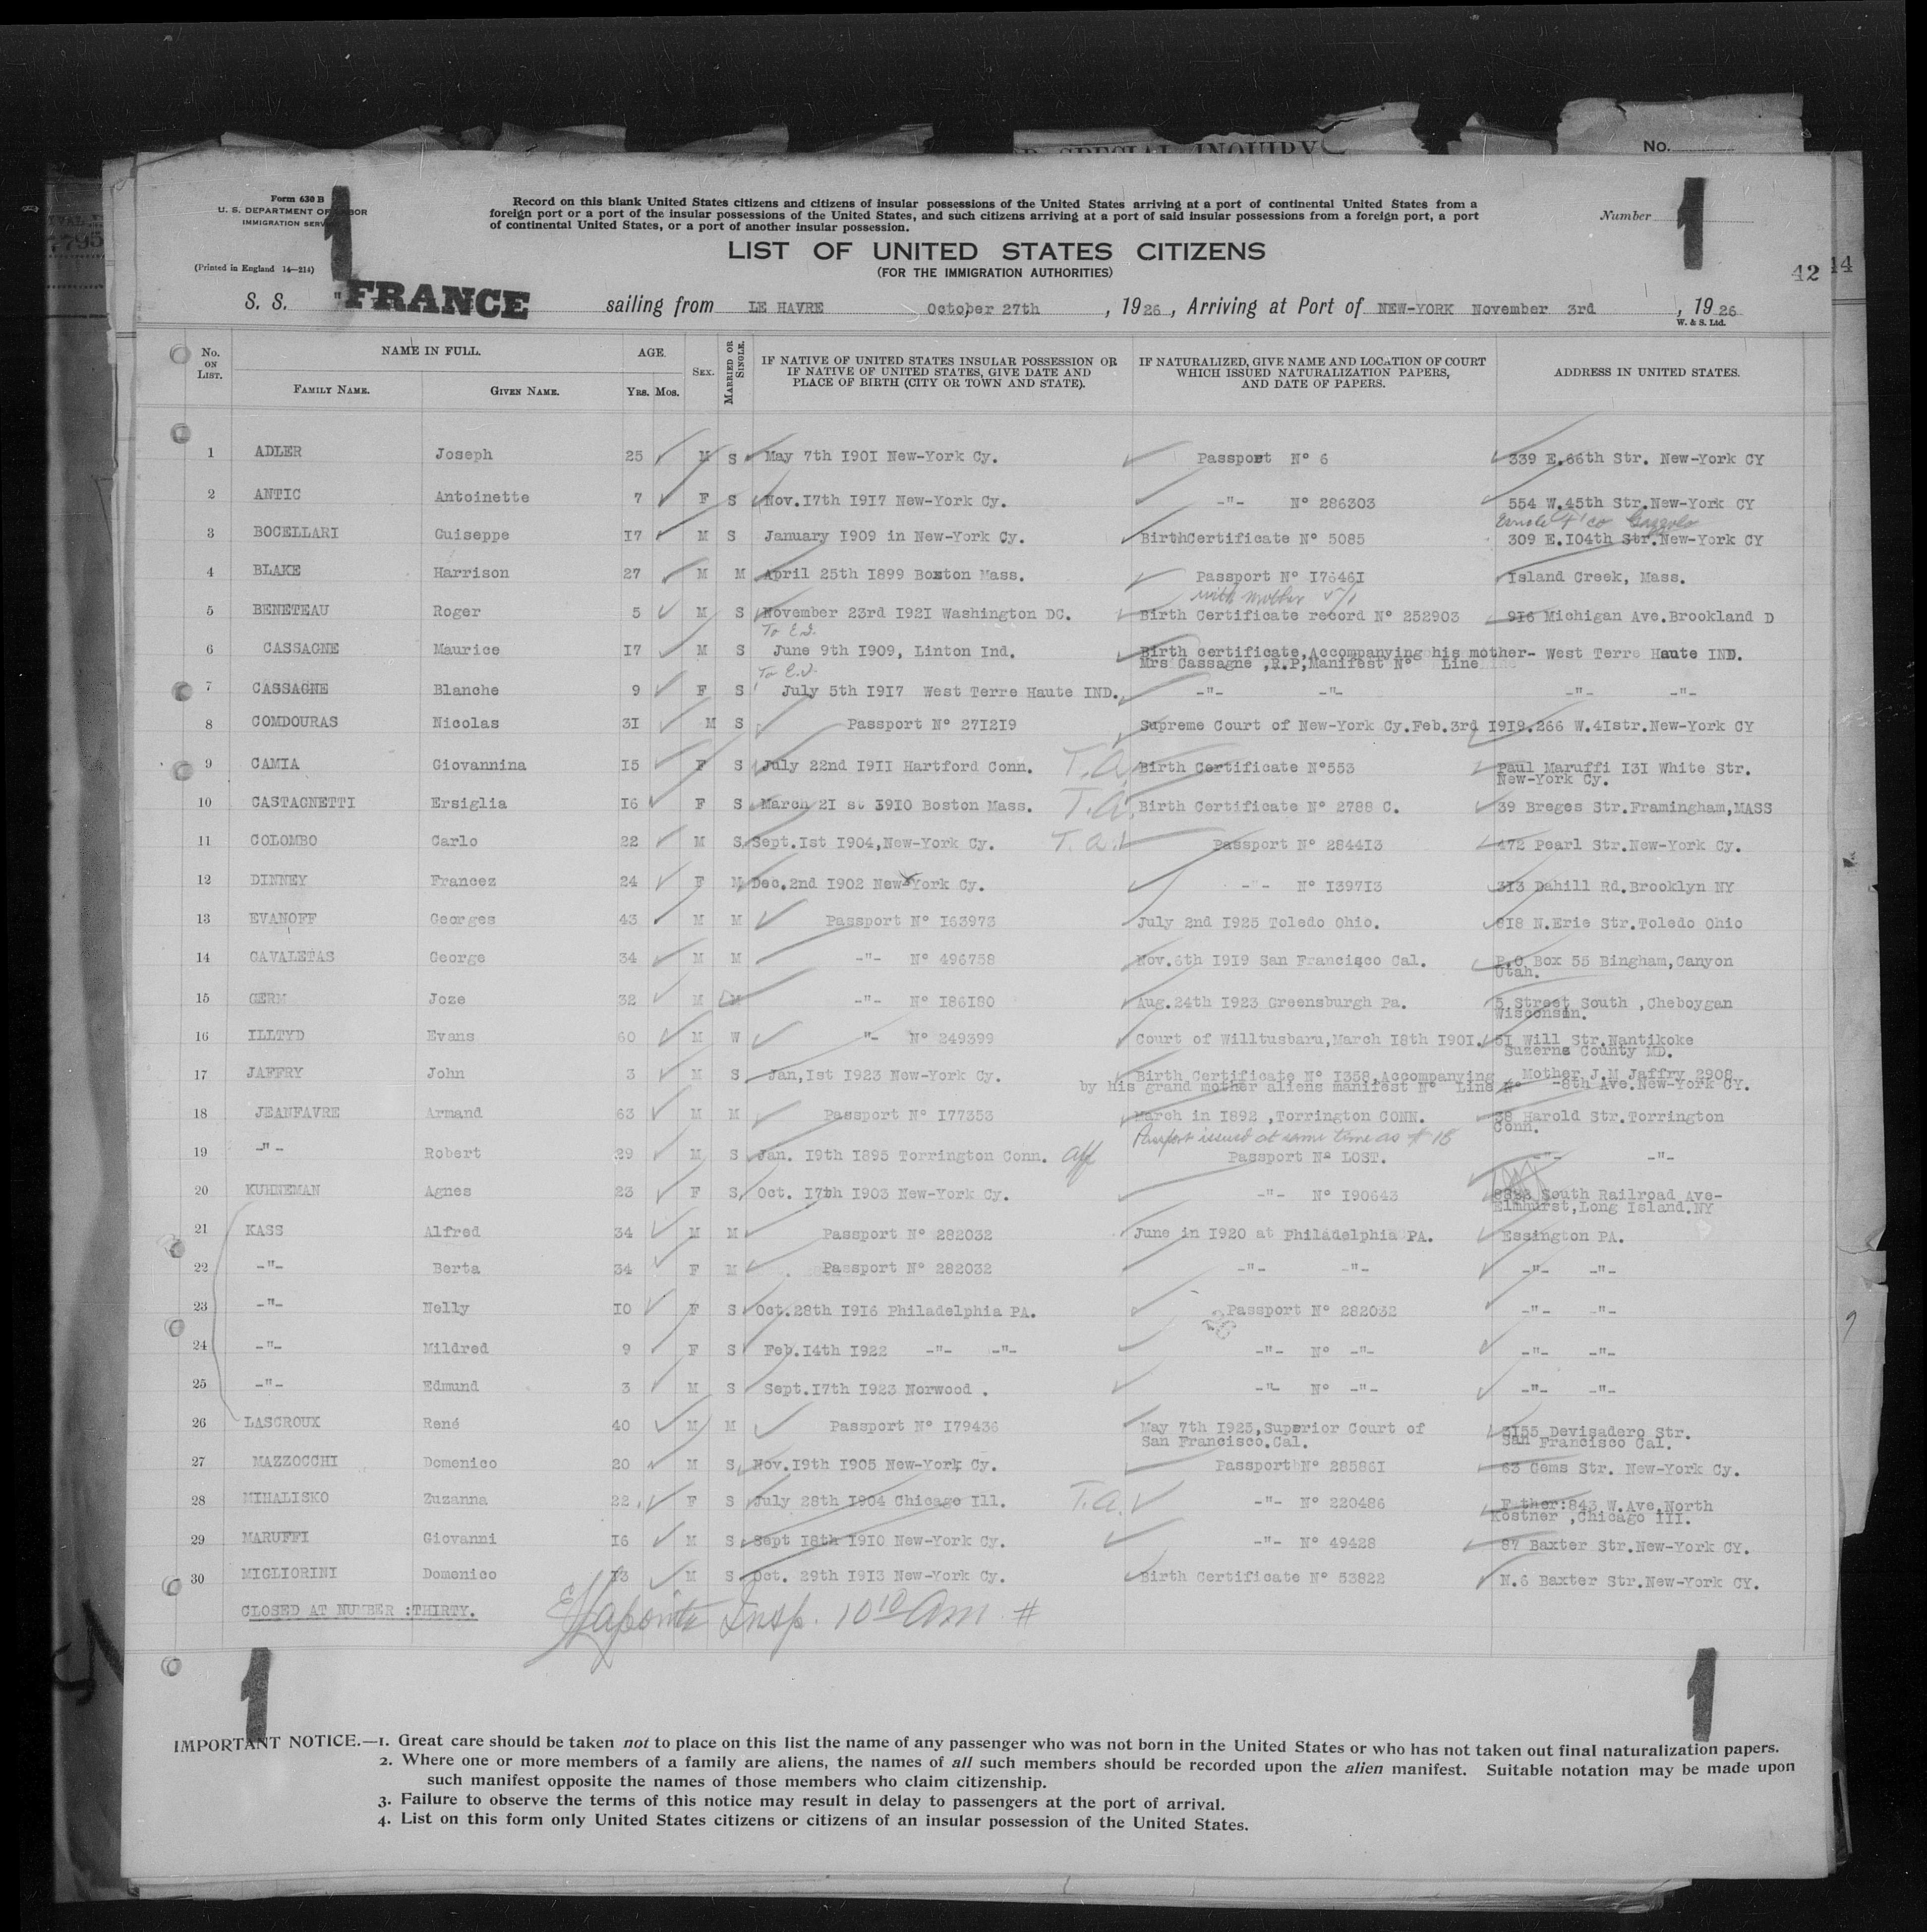 SPECIAL INQUIRY
No.
Form 630 B
U. S. DEPARTMENT OF LABOR
IMMIGRATION SERVICE
(Printed in England 14—214)
1
Record on this blank United States citizens and citizens of insular possessions of the United States arriving at a port of continental United States from a
foreign port or a port of the insular possessions of the United States, and such citizens arriving at a port of said insular possessions from a foreign port, a port
of continental United States, or a port of another insular possession.
Number 1
LIST OF UNITED STATES CITIZENS
(FOR THE IMMIGRATION AUTHORITIES)
42 14
S. S. "FRANCE sailing from LE HAVRE October 27th , 1926 , Arriving at Port of NEW-YORK November 3rd , 1926
W. & S. Ltd.
No. ON LIST. NAME IN FULL. FAMILY NAME. GIVEN NAME. AGE. YRS. MOS. SEX. MARRIED OR SINGLE. IF NATIVE OF UNITED STATES INSULAR POSSESSION OR IF NATIVE OF UNITED STATES, GIVE DATE AND PLACE OF BIRTH (CITY OR TOWN AND STATE). IF NATURALIZED, GIVE NAME AND LOCATION OF COURT WHICH ISSUED NATURALIZATION PAPERS, AND DATE OF PAPERS. ADDRESS IN UNITED STATES.
1 ADLER Joseph 25 M S May 7th I90I New-York Cy. Passport N° 6 339 E.66th Str. New-York CY
2 ANTIC Antoinette 7 F S Nov.17th I917 New-York Cy. -"- N° 286303 554 W.45th Str.New-York CY
3 BOCELLARI Guiseppe I7 M S January 1909 in New-York Cy. BirthCertificate N° 5085 309 E.I04th Str.New-York CY
4 BLAKE Harrison 27 M M April 25th I899 Boston Mass. Passport N° I7646I Island Creek, Mass.
with mother 5/1
5 BENETEAU Roger 5 M S November 23rd I92I Washington DC. Birth Certificate record N° 252903 916 Michigan Ave.Brookland D
To E.I.
6 CASSAGNE Maurice I7 M S June 9th I909, Linton Ind. Birth certificate,Accompanying his mother- West Terre Haute IND.
Mrs Cassagne ,R.P,Manifest N° Line
7 CASSAGNE Blanche 9 F S July 5th I917 West Terre Haute IND. -"- -"- -"- -"-
8 COMDOURAS Nicolas 3I M S Passport N° 271219 Supreme Court of New-York Cy.Feb.3rd I919.266 W.4Istr.New-York CY
9 CAMIA Giovannina I5 F S July 22nd I9II Hartford Conn. T.A. Birth Certificate N°553 Paul Maruffi I3I White Str.
New-York Cy.
10 CASTAGNETTI Ersiglia I6 F S March 2I st 3910 Boston Mass. T.A. Birth Certificate N° 2788 C. 39 Breges Str.Framingham,MASS
11 COLOMBO Carlo 22 M S Sept.1st I904,New-York Cy. T.A. Passport N° 2844I3 472 Pearl Str.New-York Cy.
12 DINNEY Francez 24 F M Dec.2nd I902 New-York Cy. -"- N° I397I3 3I3 Dahill Rd.Brooklyn NY
13 EVANOFF Georges 43 M M Passport N° I63973 July 2nd I925 Toledo Ohio. 818 N.Erie Str.Toledo Ohio
14 GAVALETAS George 34 M M -"- N° 496758 Nov.6th I919 San Francisco Cal. P.O Box 55 Bingham,Canyon
Utah.
15 GERM Joze 32 M M -"- N° I86I80 Aug.24th I923 Greensburgh Pa. 5 Street South ,Cheboygan
Wisconsin.
16 ILLTYD Evans 60 M W "- N° 249399 Court of Willtusbaru,March I8th I90I. 5I Will Str.Nantikoke
Suzerne County MD.
17 JAFFRY John 3 M S Jan,Ist I923 New-York Cy. Birth Certificate N° I358,Accompanying Mother J.M Jaffry 2908
by his grand mother aliens manifest N° Line N° -8th Ave.New-York CY.
18 JEANFAVRE Armand 63 M M Passport N° I77353 March in I892 ,Torrington CONN. 38 Harold Str.Torrington
Conn.
Passport issued at same time as # 18
19 -"- Robert 29 M S Jan. I9th I895 Torrington Conn. aff Passport N° LOST. -"- -"-
20 KUHNEMAN Agnes 23 F S Oct. I7th I903 New-York Cy. -"- N° I90643 South Railroad Ave-
Elmhurst,Long Island.NY
21 KASS Alfred 34 M M Passport N° 282032 June in I920 at Philadelphia PA. Essington PA.
22 -"- Berta 34 F M Passport N° 282032 -"- -"- -"- -"-
23 -"- Nelly I0 F S Oct.28th I916 Philadelphia PA. Passport N° 282032 -"- -"-
24 -"- Mildred 9 F S Feb.I4th I922 -"- -"- -"- N° -"- -"- -"-
25 -"- Edmund 3 M S Sept.I7th I923 Norwood . -"- N° -"- -"- -"-
26 LASCROUX René 40 M M Passport N° I79436 May 7th I923,Superior Court of 3I55 Devisadero Str.
San Francisco.Cal. San Francisco Cal.
27 MAZZOCCHI Domenico 20 M S Nov.I9th I905 New-York Cy. Passport N° 28586I 63 Gems Str. New-York Cy.
28 MIHALISKO Zuzanna 22 F S July 28th I904 Chicago Ill. T.A. -"- N° 220486 Father:843 W.Ave,North
Kostner ,Chicago III.
29 MARUFFI Giovanni I6 M S Sept I8th I910 New-York Cy. -"- N° 49428 87 Baxter Str.New-York CY.
30 MIGLIORINI Domenico I3 M S Oct. 29th I913 New-York Cy. Birth Certificate N° 53822 N.6 Baxter Str.New-York CY.
CLOSED AT NUMBER :THIRTY. Lapointe Insp. 10 10 am #
1 1
IMPORTANT NOTICE.—1. Great care should be taken not to place on this list the name of any passenger who was not born in the United States or who has not taken out final naturalization papers.
2. Where one or more members of a family are aliens, the names of all such members should be recorded upon the alien manifest. Suitable notation may be made upon
such manifest opposite the names of those members who claim citizenship.
3. Failure to observe the terms of this notice may result in delay to passengers at the port of arrival.
4. List on this form only United States citizens or citizens of an insular possession of the United States.